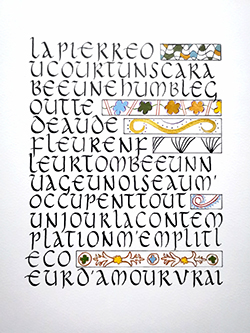 LAPIERREO
UCOURTUNSCARA
BEEUNEHUMBLEG
OUTTE
DEAUDE
FLEURENF
LEURTOMBEEUNN
UAGEUNOISEAUM'
OCCUPENTTOUT
UNJOURLACONTEM
PLATIONM'EMPLITL
ECO
EURD'AMOURVRAI